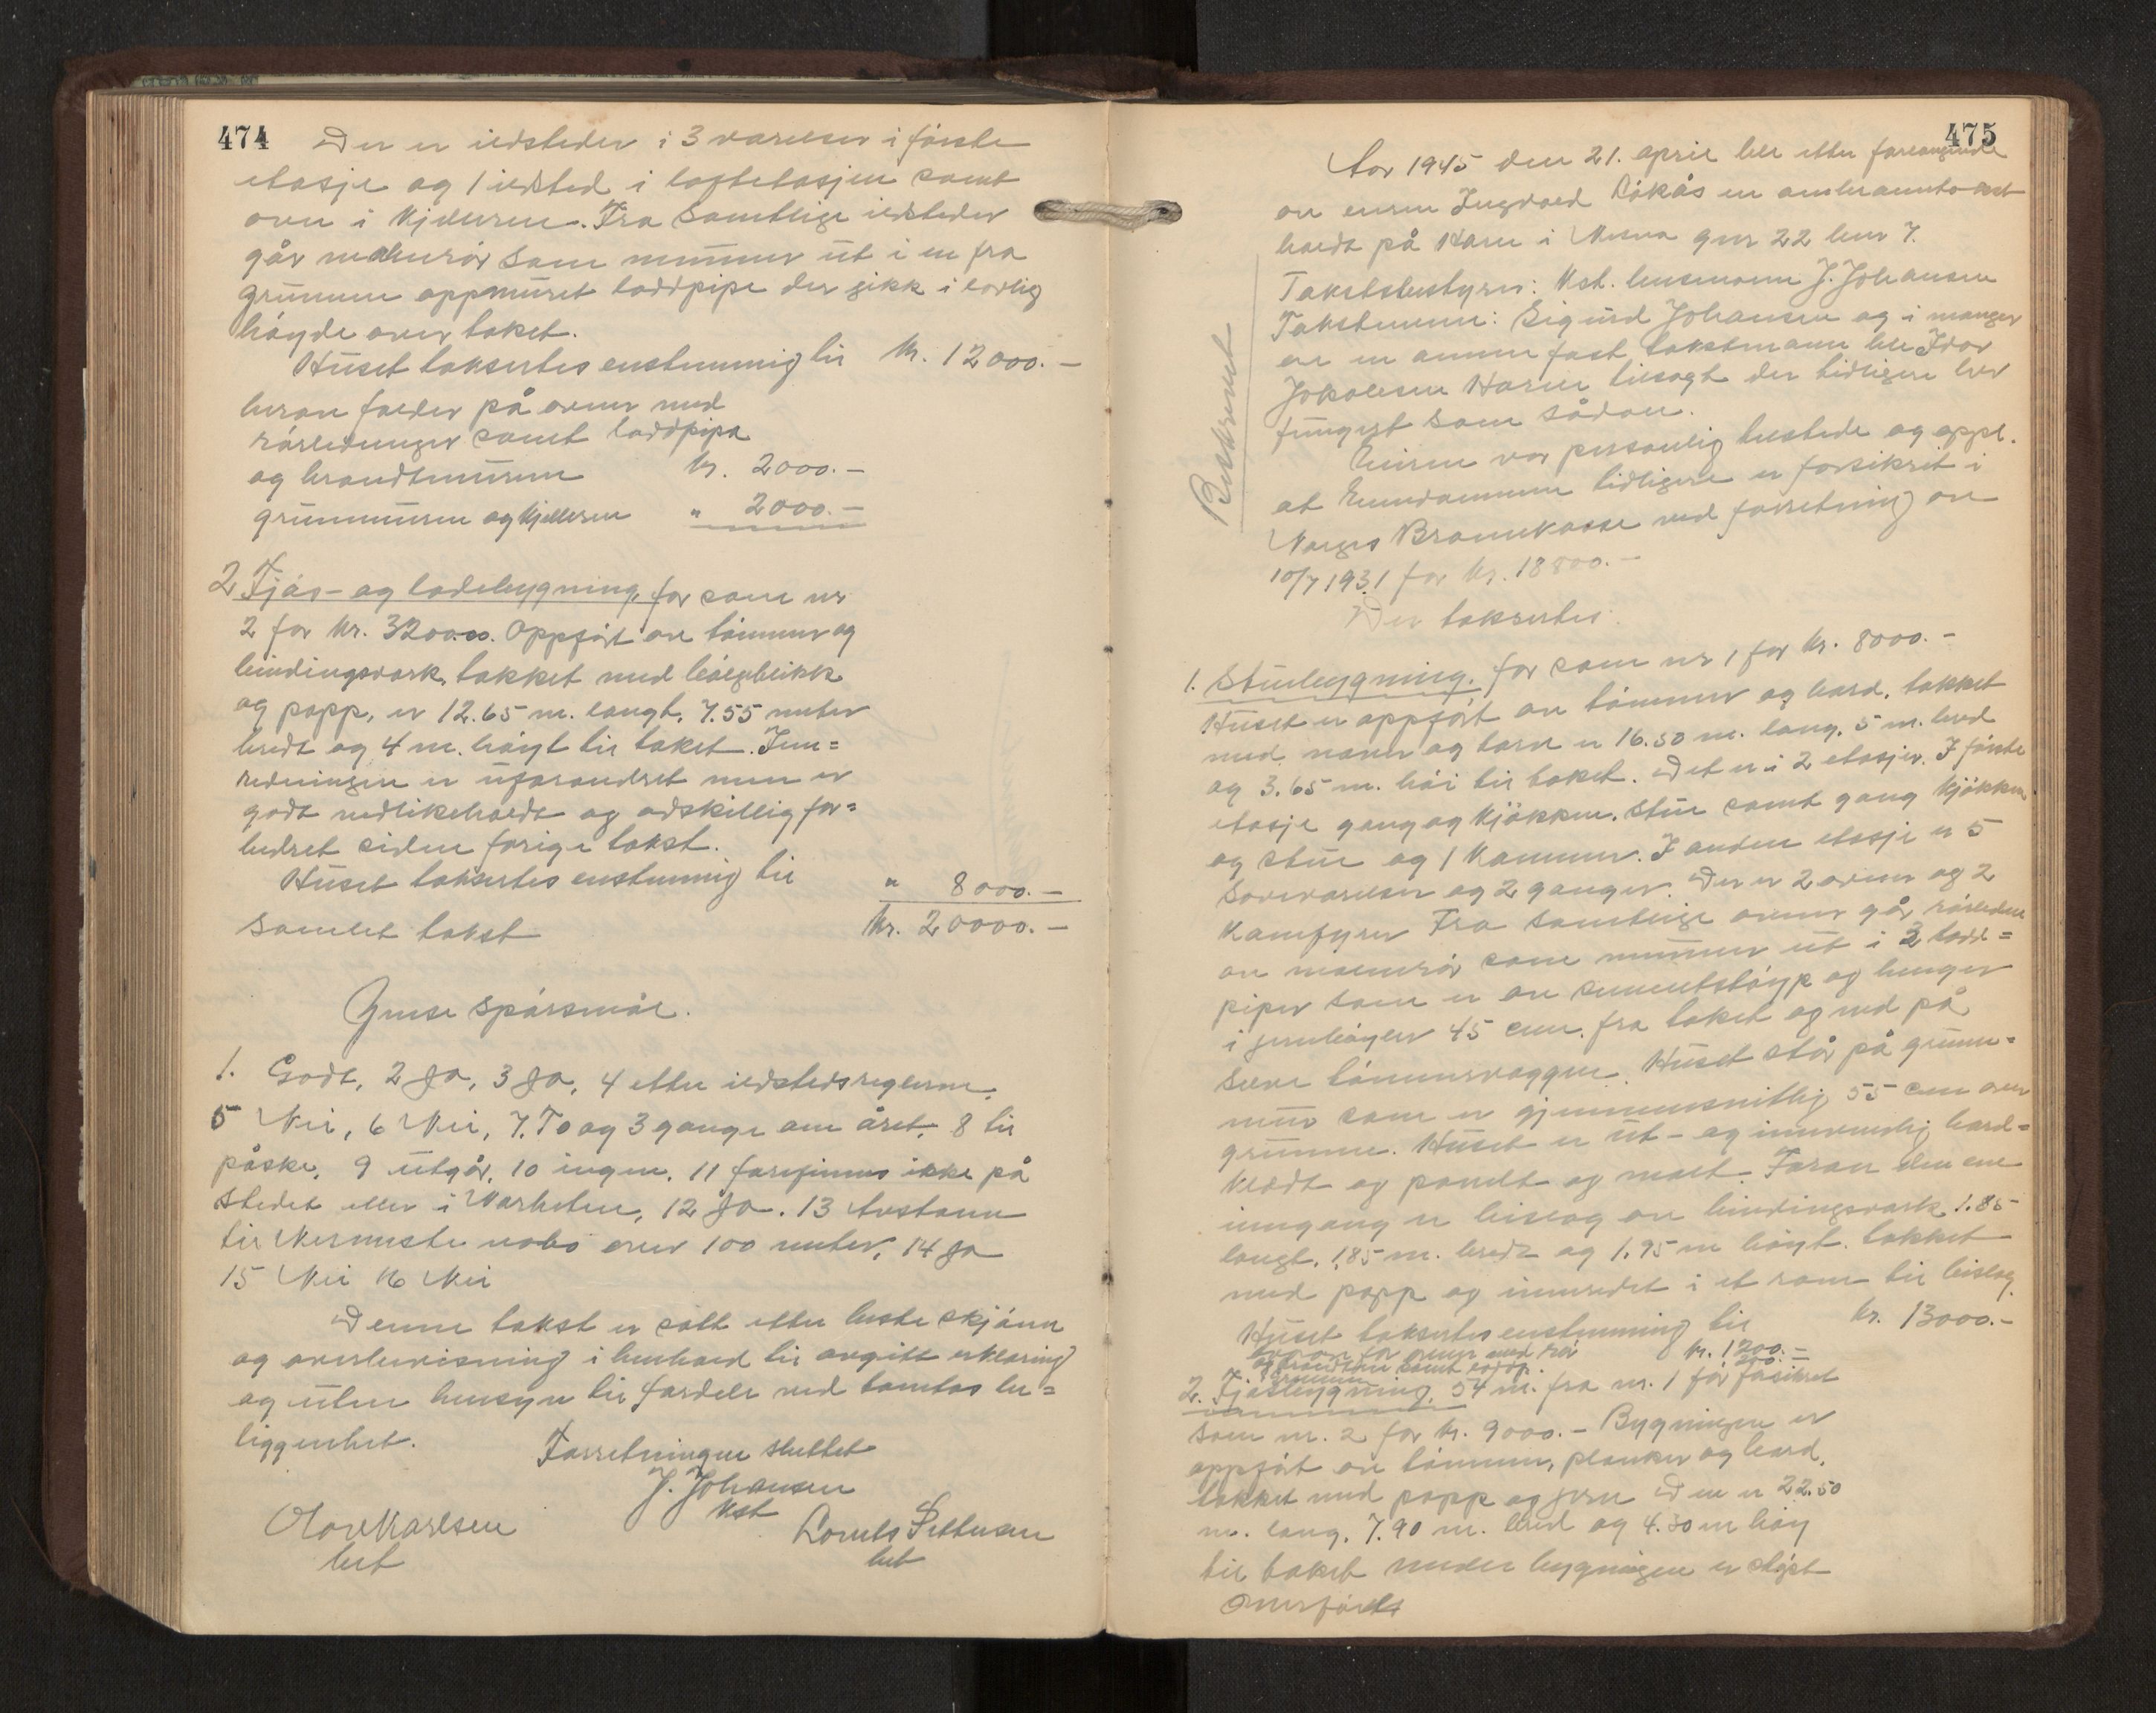 474
Der er ildsteder i 3 værelser i første
etasje og 1 ildsted i loftetasjen samt
ovn i kjelleren. Fra samtlige ildsteder
går malmrør som munner ut i en fra
grunnen oppmuret loddpipe der gikk i lovlig
høyde over taket.
Huset taksertes enstemmig til kr. 12000.-
herav falder på ovner med
rørledninger samt loddpipa
og brandtmuren kr. 2000.-
grunnmuren og kjelleren " 2000.-
2 Fjøs- og ladebygning, før som nr
2 for kr. 3200.00. Oppført av tømmer og
bindingsverk, takket med bølgeblikk
og papp, er 12.65 m. langt, 7.55 meter
bredt og 4 m. høyt til taket. Inn=
redningen er uforandret men er
godt vedlikeholdt og adskillig for=
bedret siden forige takst.
Huset taksertes enstemmig til " 8000.-
Samlet takst kr. 20000.-
Ymse spørsmål.
1. Godt, 2 Ja, 3 Ja, 4 etter ildstedsreglerne,
5 Nei, 6 Nei, 7. To og 3 gange om året, 8 til
påske, 9 utgår, 10 ingen, 11 forefinnes ikke på
stedet eller i nærheten, 12 Ja. 13 Avstann
til nærmeste nabo over 100 meter, 14 Ja
15 Nei 16 Nei
Denne takst er satt etter beste skjønn
og overbevisning i henhold til avgitt erklæring
og uten hensyn til fordele ved tomtas be=
liggenhet.
Forretningen sluttet
J. Johansen
kst
Olav Karlsen
lest
Lorents Pettersen
lest
475
Aar 1945 den 21. april ble etter forlangende
av eieren Ingvald Røkås en ombranntakst
holdt på Haren i Mosvik gnr 22 bnr 7.
Takstbestyrer: Kst. lensmann J. Johansen
Takstmenn: Sigurd Johansen og i mangel
av en annen fast takstmann ble Idar
Jakobsen Haren tilsagt der tidligere har
fungert som sådan.
Beskrevet
Eieren var personlig tilstede og oppl.
at Eiendommen tidligere er forsikret i
Norges Brannkasse ved forretning av
10/7 1931 for kr. 18800.-
Der taksertes:
1. Stuebygning. før som nr 1 for kr. 8000.-
Huset er oppført av tømmer og bord, takket
med never og torv er 16.50 m. lang, 5 m. bred
og 3.65 m. høi til taket. Det er i 2 etasjer. I første
etasje gang og kjøkken, stue samt gang kjøkken
og stue og 1 kammer. I anden etasje er 5
soveværelser og 2 ganger. Der er 2 ovner og 2
komfyrer Fra samtlige ovner går rørledn
av malmrør som munner ut i 2 lodd=
piper som er av sementstøyp og henger
i jernbøyler 45 cm. fra taket og ned på
selve tømmerveggen. Huset står på grunn=
mur som er gjennemsnitlig 55 cm over
grunnen. Huset er ut- og innvendig bord=
kledt og panelt og malt. Foran den ene
inngang er bislag av bindingsverk 1.85
langt, 1.85 m. bredt og 1.95 m høyt. takket
med papp og innredet i et rom til bislag.
Huset taksertes enstemmig til kr. 13000.-
herav for ovner med rør kr. 1200.-
og brandtm samt loddp.
2. Fjøsbygning, 54 m. fra nr. 1 før forsikret
som nr. 2 for kr. 9000.- Bygningen er
oppført av tømmer, planker og bord,
takket med papp og jern Den er 22.50
m. lang, 7.90 m. bred og 4.30 m høy
til taket under bygningen er støpt
Overføres